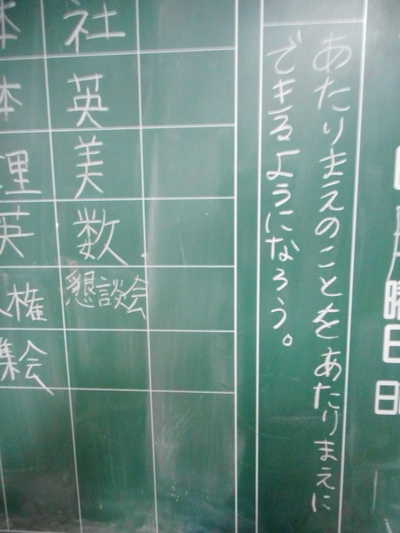 月
曜日
日
あたりまえのことをあたりまえに
できるようになろう。
社
英
美
数
懇談会
本
体
理
英
人権
集会